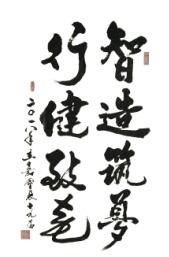 智造筑夢
行健致遠
二〇一八年